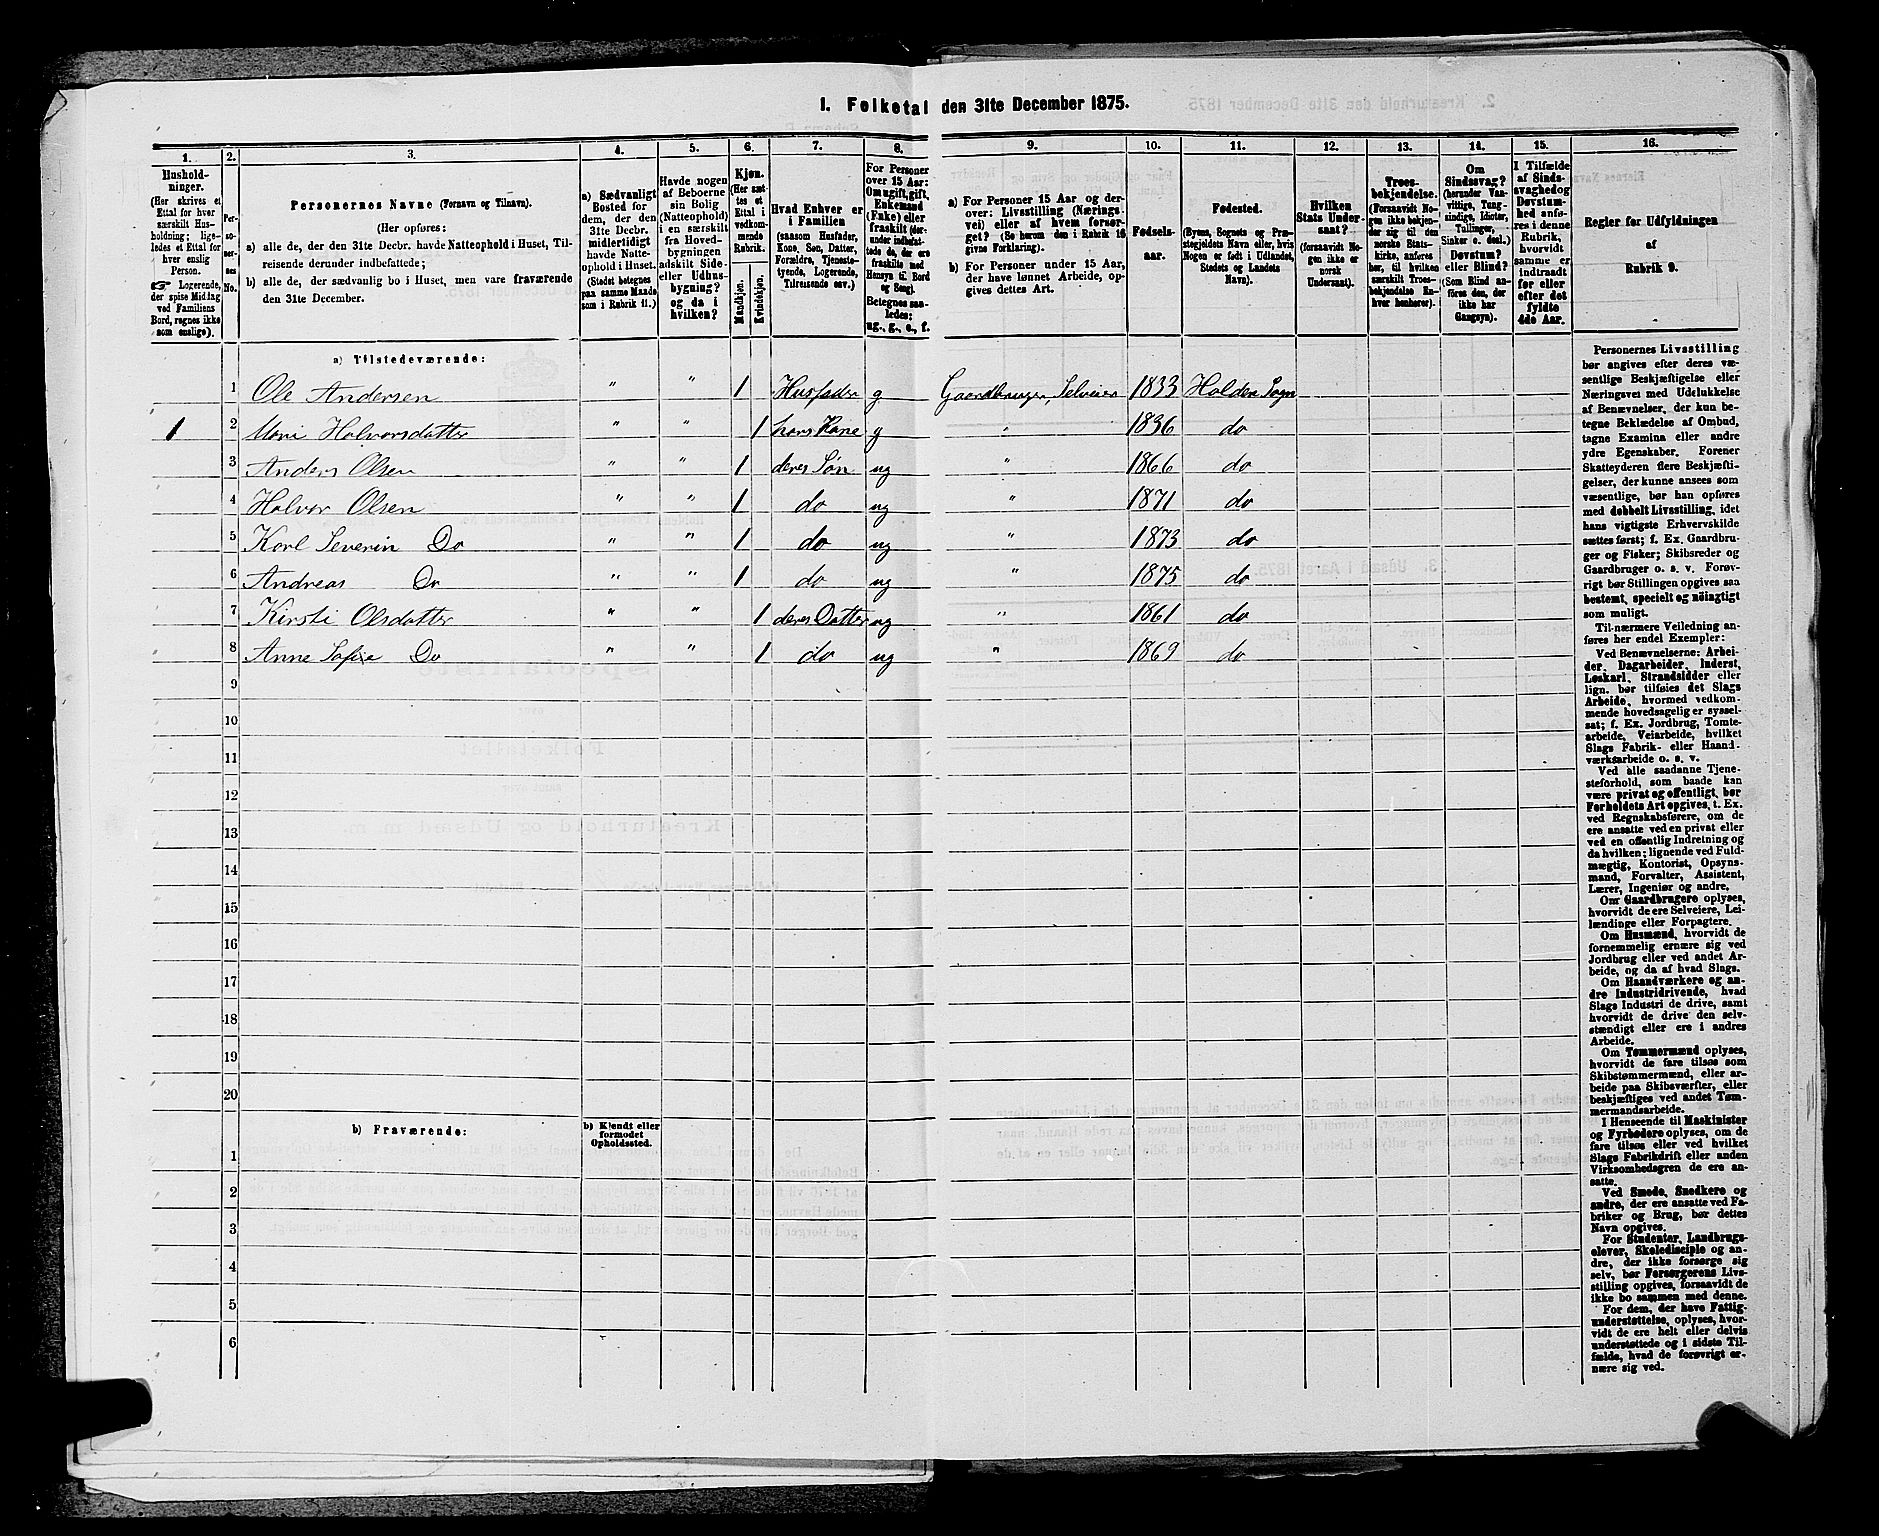 I. Folketal den 31te December 1875.
1. 2. 3. 4. 5. 6. 7. 8. 9. 10. 11. 12. 13. 14. 15. 16.
Hushold-
ninger.
(Her skrives et
Ettal for hver
særskilt Hus-
holdning; lige-
ledes et Ettal for
hver enslig
Person.
☛ Logerende,
der spise Middag
ved Familiens
Bord, regnes ikke
som enslige).
Per-
so-
ner-
nes
No.
Personernes Navne (Fornavn og Tilnavn).
(Her opføres:
a) alle de, der den 31te Decbr. havde Natteophold i Huset, Til-
reisende derunder indbefattede;
b) alle de, der sædvanlig bo i Huset, men vare fraværende
den 31te December.
a) Sædvanligt
Bosted for
dem, der den
31te Decbr.
midlertidigt
havde Natte-
ophold i Huset.
(Stedet betegnes
paa samme Maade
som i Rubrik 11.)
Havde nogen
af Beboerne
sin Bolig
(Natteophold)
i en særskilt
fra Hoved-
bygningen
adskilt Side-
eller Udhus-
bygning?
og da i
hvilken?
Kjøn.
(Her sæt-
tes et
Ettal i
vedkom-
mende
Rubrik.
Mandkjøn.
Kvindekjøn.
Hvad Enhver er
i Familien
(saasom Husfader,
Kone, Søn, Datter,
Forældre, Tjeneste-
tyende, Logerende,
Tilreisende osv.)
For Personer
over 15 Aar:
Om ugift, gift,
Enkemand
(Enke) eller
fraskilt (der-
under indbefat-
tede de, der ere
fraskilte med
Hensyn til Bord
og Seng).
Betegnes saa-
ledes:
ug., g., e., f.
a) For Personer 15 Aar og der-
over: Livsstilling (Nærings-
vei) eller af hvem forsør-
get? (Se herom den i Rubrik 16
givne Forklaring).
b) For Personer under 15 Aar,
der have lønnet Arbeide, op-
gives dettes Art.
Fødsels-
aar.
Fødested.
(Byens, Sognets og Præ-
stegjeldets Navn eller, hvis
Nogen er født i Udlandet,
Stedets og Landets
Navn).
Hvilken
Stats Under-
saat?
(forsaavidt No-
gen ikke er
norsk
Undersaat).
Troes-
bekjendelse.
(Forsaavidt No-
gen ikke bekjen-
der sig til den
norske Stats-
kirke, anføres
her, til hvilken
særskilt Troes-
bekjendelse En-
hver henhører).
Om
Sindssvag?
(herunder Van-
vittige, Tung-
sindige, Idioter,
Tullinger,
Sinker o. desl.)
Døvstum?
eller Blind?
(Som Blind an-
føres den, der
ikke har
Gangsyn).
I Tilfælde
af Sinds-
svaghed og
Døvstum-
hed anfø-
res i denne
Rubrik,
hvorvidt
samme er
indtraadt
før eller
efter det
fyldte
4de Aar.
Regler for Udfyldningen
af
Rubrik 9.
a) Tilstedeværende:
1 Ole Andersen " " 1 Husfader g Gaardbruger, Selveier 1833 Holden Sogn
1 2 Mari Halvorsdatter " " 1 hans Kone g " 1836 do
3 Anders Olsen " " 1 deres Søn ug " 1866 do
4 Halvor Olsen " " 1 do ug " 1871 do
5 Karl Severin Do " " 1 do ug " 1873 do
6 Andreas Do " " 1 do ug " 1875 do
7 Kirsti Olsdatter " " 1 deres Datter ug " 1861 do
8 Anne Sofie Do " " 1 do ug " 1869 do
9
10
11
12
13
14
15
16
17
18
19
20
b) Fraværende:
b) Kjendt eller
formodet
Opholdssted.
1
2
3
4
5
6
Personernes Livsstilling
bør angives efter deres væ-
sentlige Beskjæftigelse eller
Næringsvei med Udelukkelse
af Benævnelser, der kun be-
tegne Beklædelse af Ombud,
tagne Examina eller andre
ydre Egenskaber. Forener
Skatteyderen flere Beskjæfti-
gelser, der kunne ansees som
væsentlige, bør han opføres
med dobbelt Livsstilling, idet
hans vigtigste Erhvervskilde
sættes først; f. Ex. Gaardbru-
ger og Fisker; Skibsreder og
Gaardbruger o. s. v. Forøv-
rigt bør Stillingen opgives saa
bestemt, specielt og nøiagtigt
som muligt.
Til nærmere Veiledning an-
føres her endel Exempler:
Ved Benævnelserne: Arbei-
der, Dagarbeider, Inderst,
Løskarl, Strandsidder eller
lign. bør tilføies det Slags
Arbeide, hvormed vedkom-
mende hovedsagelig er syssel-
sat; f. Ex. Jordbrug, Tomte-
arbeide, Veiarbeide, hvilket
Slags Fabrik- eller Haand-
værksarbeide o. s. v.
Ved alle saadanne Tjene-
steforhold, som baade kan
være privat og offentligt, bør
Forholdets Art opgives, t. Ex.
ved Regnskabsførere, om de
ere ansatte ved en privat eller
ved en offentlig Indretning og
da hvilken; lignende ved Fuld-
mægtig, Kontorist, Opsyns-
mand, Forvalter, Assistent,
Lærer, Ingeniør og andre.
Om Gaardbrugere oplyses,
hvorvidt de ere Selveiere, Lei-
lændinge eller Forpagtere.
Om Husmænd, hvorvidt de
fornemmelig ernære sig ved
Jordbrug eller ved andet Ar-
beide, og da af hvad Slags.
Om Haandværkere og an-
dre Industridrivende, hvad
Slags Industri de drive, samt
hvorvidt de drive den selv-
stændigt eller ere i andres
Arbeide.
Om Tømmermænd oplyses,
hvorvidt de fare tilsøs som
Skibstømmermænd, eller ar-
beide paa Skibsværfter, eller
beskjæftiges ved andet Tøm-
mermandsarbeide.
I Henseende til Maskinister
og Fyrbødere oplyses, om de
fare tilsøs eller ved hvilket
Slags Fabrikdrift eller anden
Virksomhedsgren de ere an-
satte.
Ved Smede, Snedkere og
andre, der ere ansatte ved Fa-
briker og Brug, bør dettes
Navn opgives.
For Studenter, Landbrugs-
elever, Skoledisciple og an-
dre, der ikke forsørge sig
selv, bør Forsørgerens Livs-
stilling opgives, forsaavidt de
ikke bo sammen med denne.
For dem, der have Fattig-
understøttelse, oplyses, hvor-
vidt de ere helt eller delvis
understøttede og i sidste Til-
fælde, hvad de forøvrigt er-
nære sig ved.